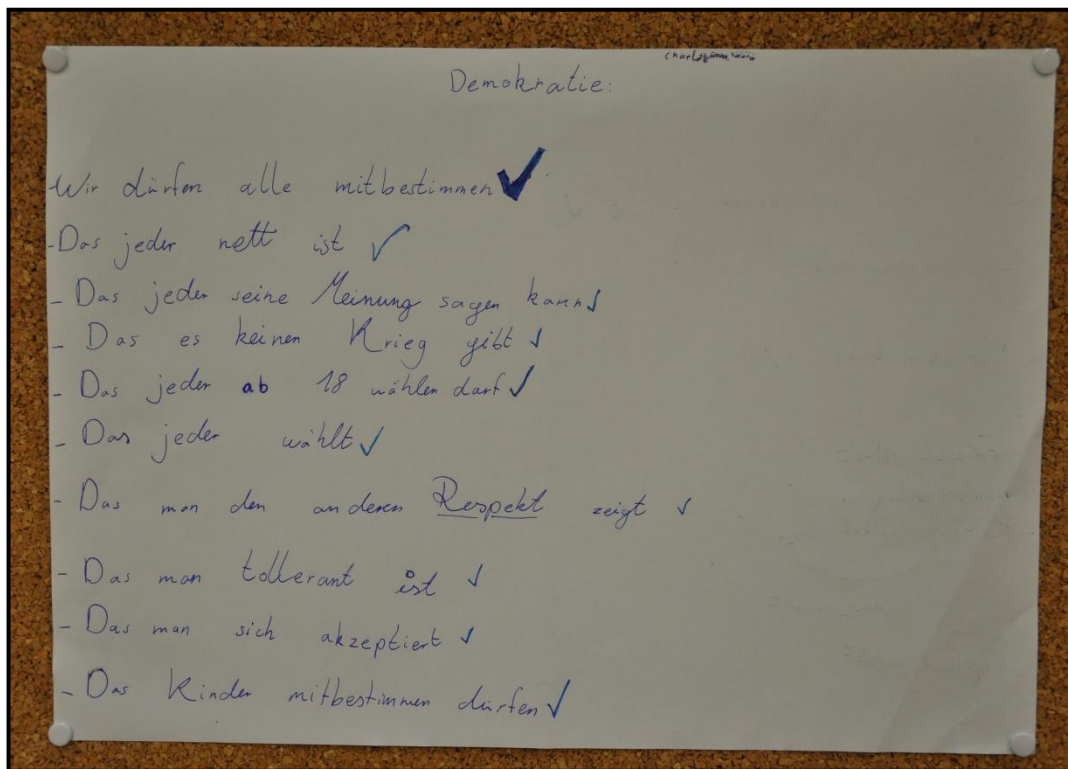 Demokratie:
-Wir dürfen alle mitbestimmen ✓
-Das jeder nett ist ✓
- Das jeder seine Meinung sagen kann ✓
- Das es keinen Krieg gibt ✓
- Das jeder ab 18 wählen darf ✓
- Das jeder wählt ✓
- Das man den anderen Respekt zeigt ✓
- Das man tollerant ist ✓
- Das man sich akzeptiert ✓
- Das Kinder mitbestimmen dürfen ✓